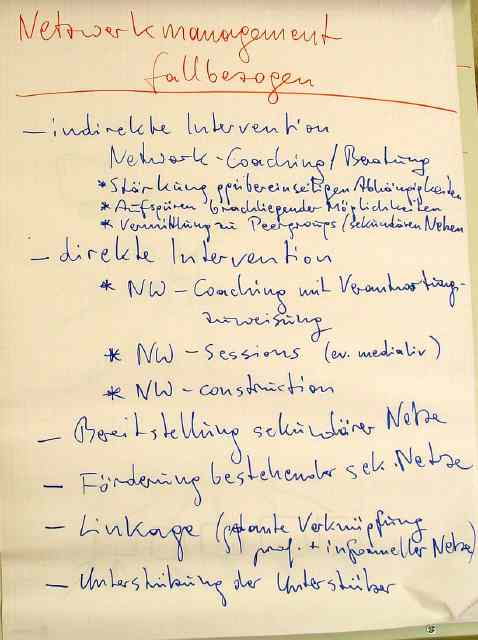 Netzwerkmanagement
fallbezogen
– indirekte Intervention
Network-Coaching/Beratung
* Stärkung ggüber einseitigen Abhängigkeiten
* Aufspüren brachliegender Möglichkeiten
* Vermittlung zu Peergroups/sekundären Netzen
– direkte Intervention
* NW-Coaching mit Verantwortungs-
zuweisung
* NW-Sessions (ev. mediativ)
* NW-construction
– Bereitstellung sekundärer Netze
– Förderung bestehender sek. Netze
– Linkage (geplante Verknüpfung
prof. + informeller Netze)
– Unterstützung der Unterstützer